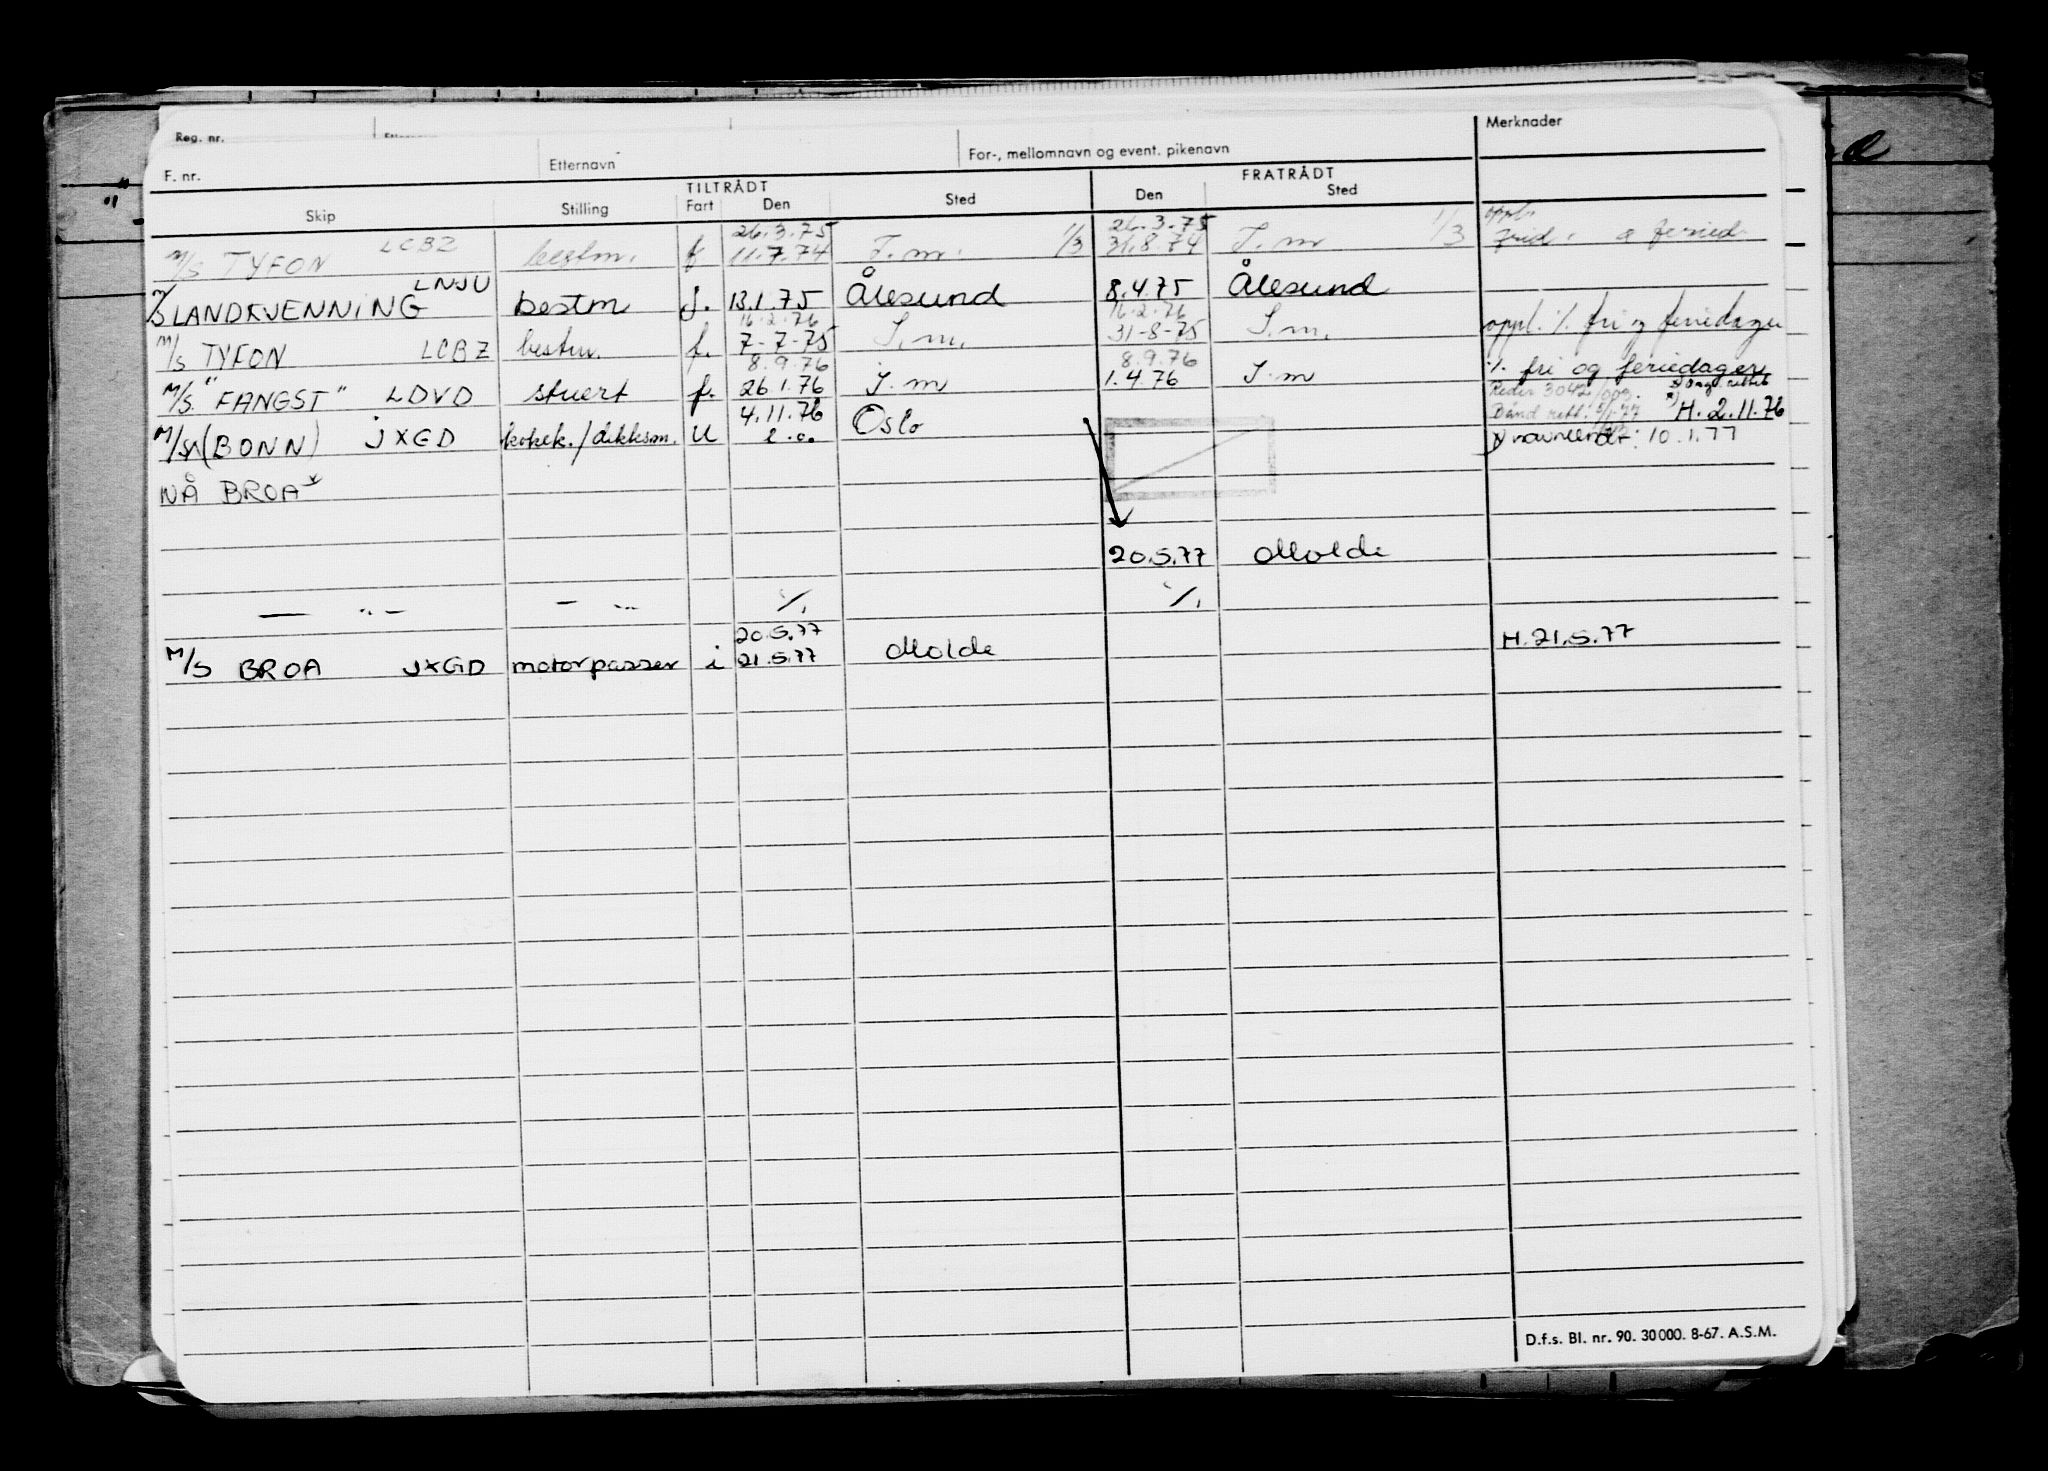 Reg. nr.
Merknader
F. nr. Etternavn For-, mellomnavn og event. pikenavn
TILTRÅDT FRATRÅDT
Skip Stilling Fart Den Sted Den Sted
26.3.75 26.3.75 oppl.
M/S TYFON LCBZ bestm. f 11.7.74 I.m. 1/3 31.8.74 I.m 1/3 frid. o feried.
LNJU
M/S LANDKJENNING bestm j. 13.1.75 Ålesund 8.4.75 Ålesund
16.2.76 16.2.76
M/S TYFON LCBZ bestm. f. 7-7-75 I.m. 31-8-75 I.m. oppl. % fri og feriedager
8.9.76 8.9.76
M/S. "FANGST" LDVD stuert f. 26.1.76 I.m 1.4.76 I.m % fri og feriedager
4.11.76 H. 2.11.76
(BONN) JXGD kokek./dekksm. u e.o. Oslo navneendr: 10.1.77
NÅ BROA*
20.5.77 Molde
— " — — " — %. %.
20.5.77
M/S BROA JXGD motorpasser i 21.5.77 Molde H. 21.5.77
D.f.s. Bl. nr. 90. 30 000. 8-67. A.S.M.